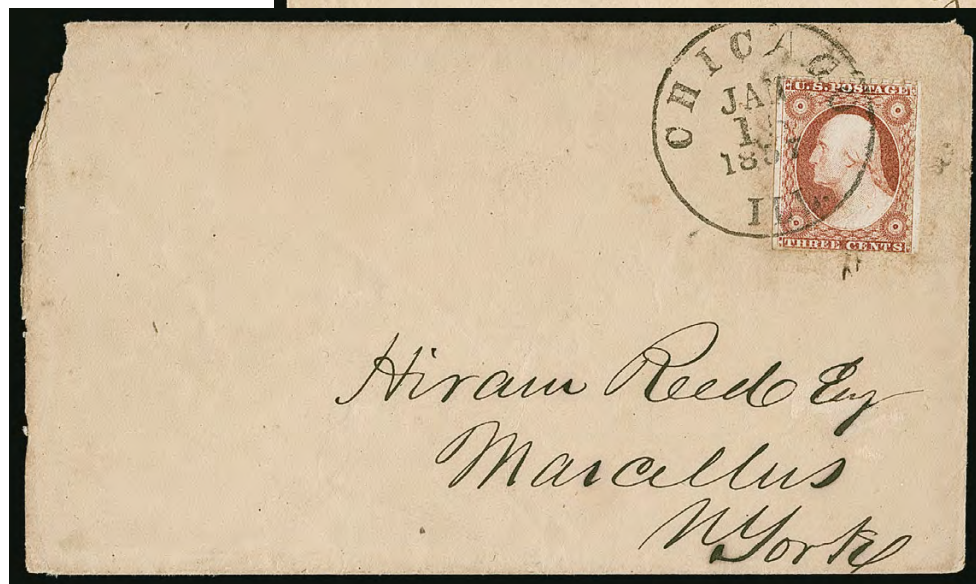 CHICAGO
JAN
1857
Ill.
U.S. POSTAGE
THREE CENTS
Hiram Reed Esq
Marcellus
N York